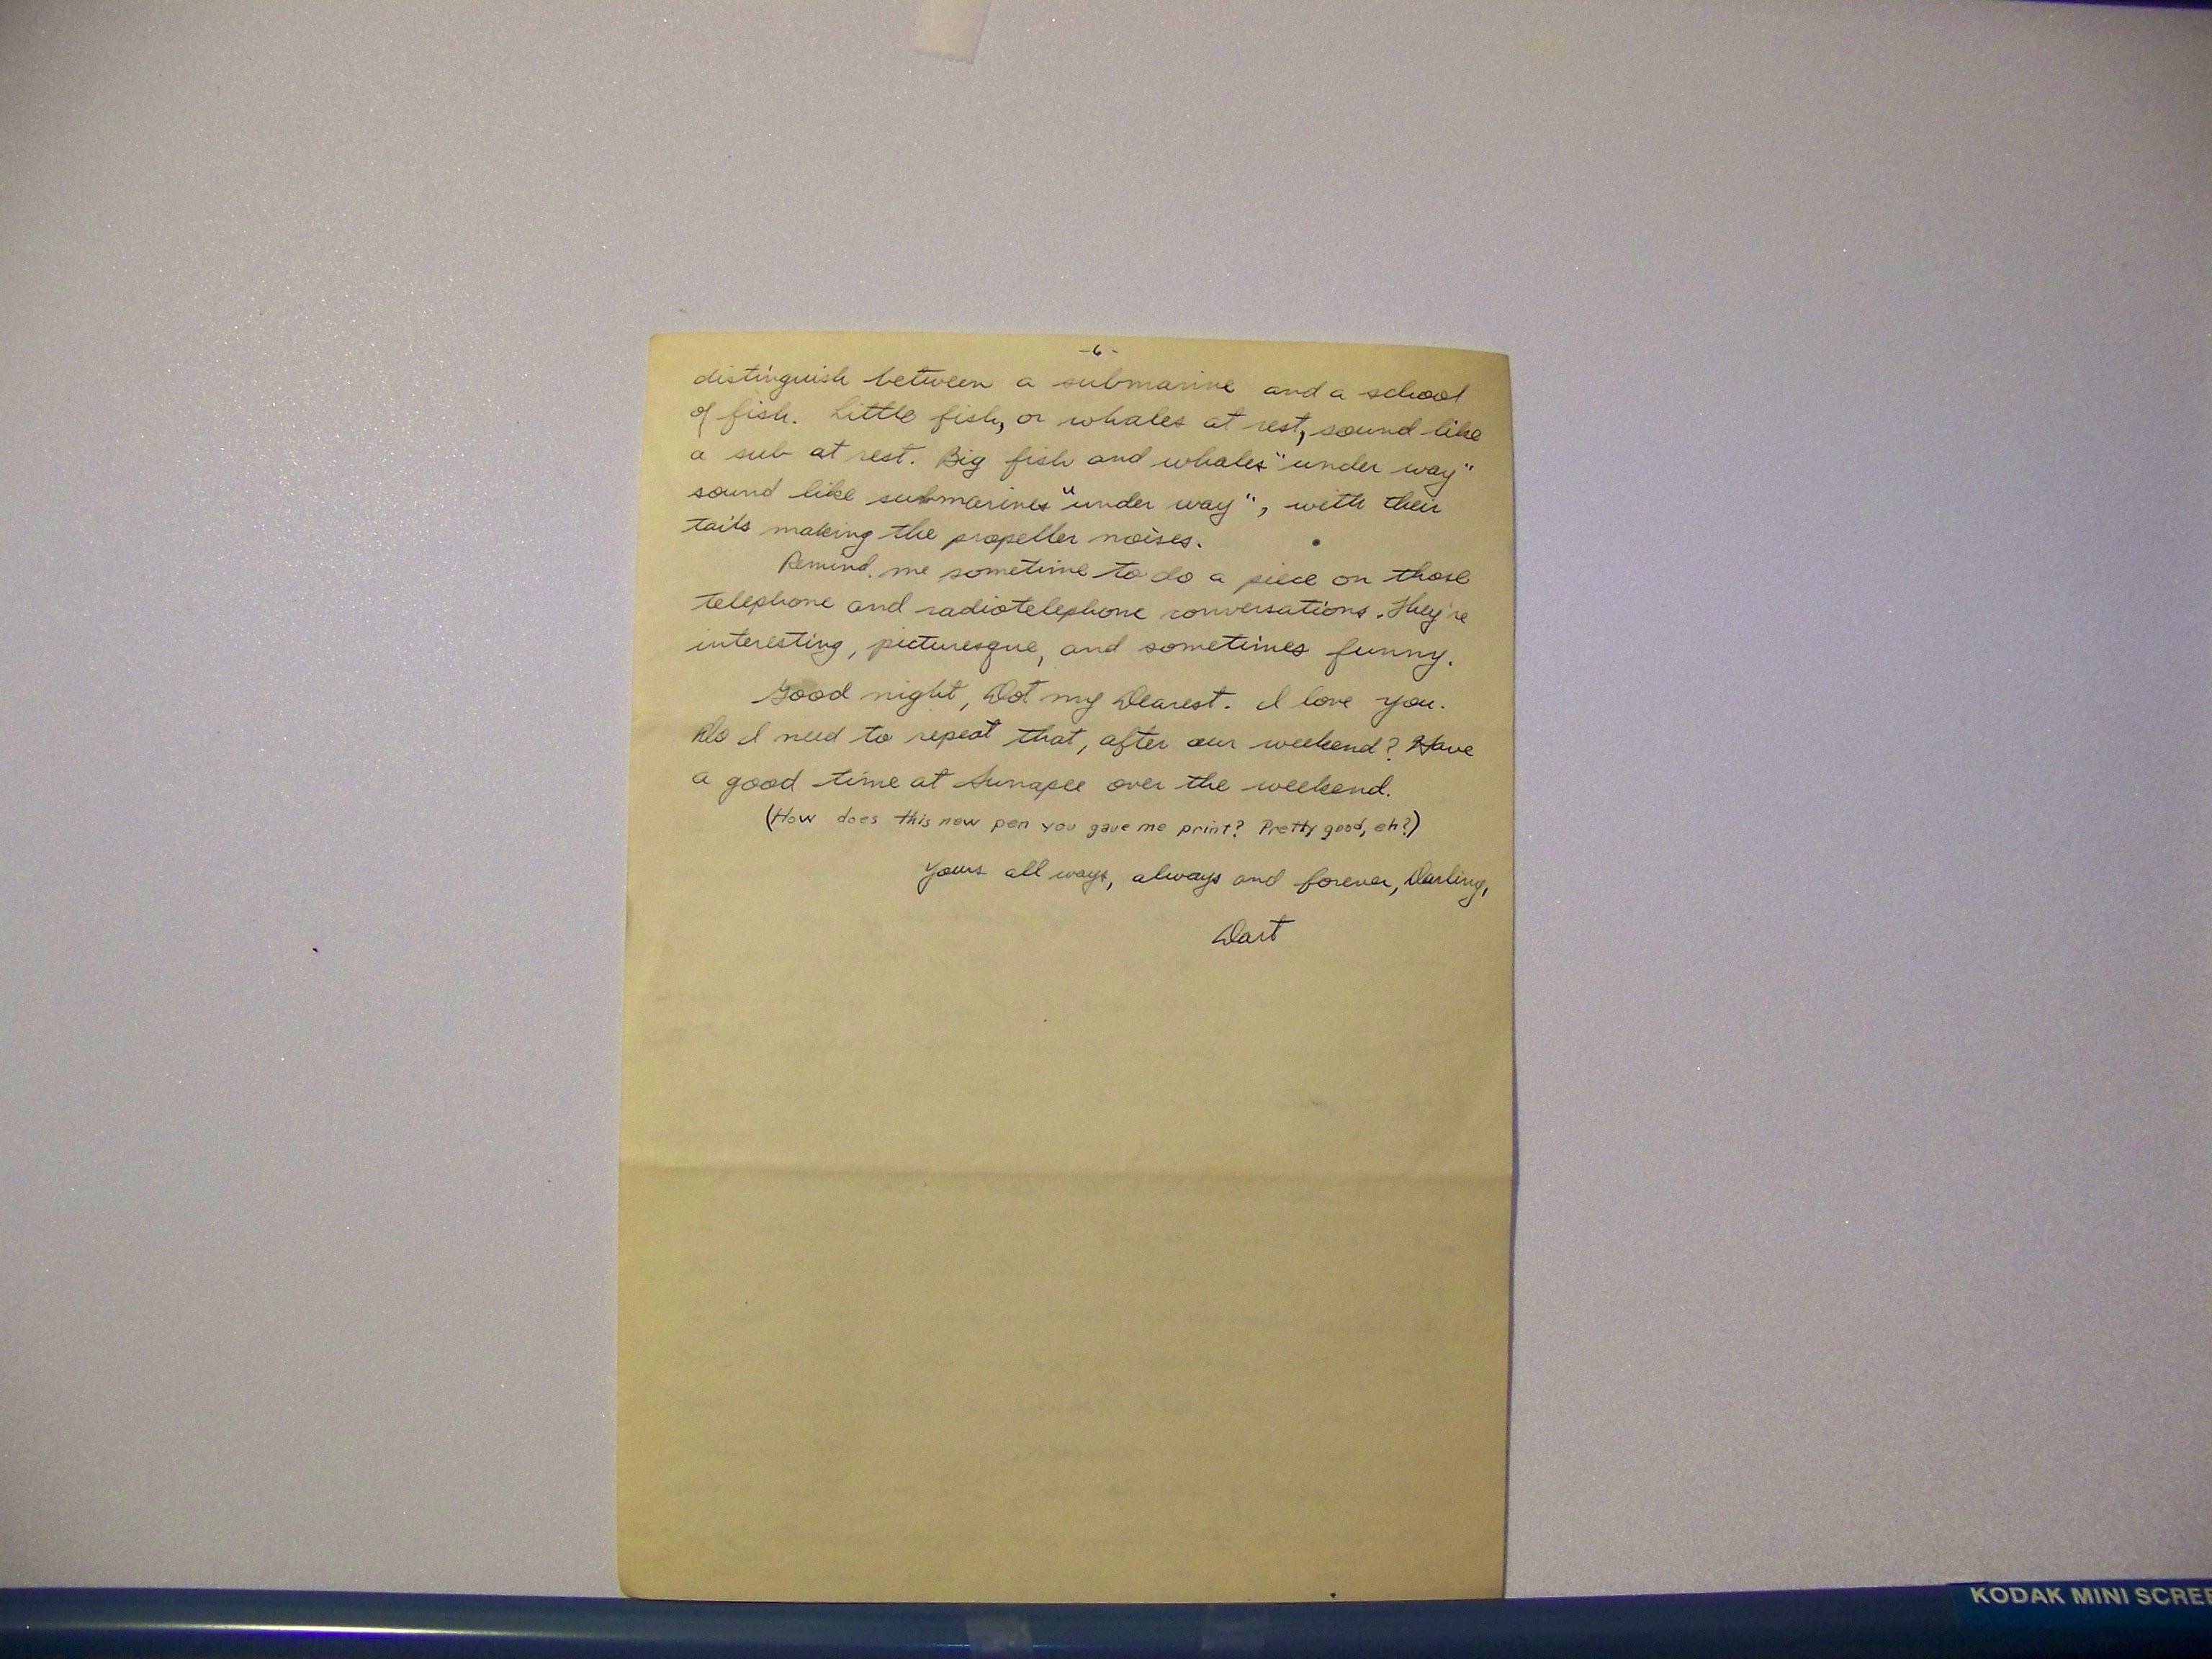 -6-
distinguish between a submarine and a school
of fish. Little fish, or whales at rest, sound like
a sub at rest. Big fish and whales "under way"
sound like submarines "under way", with their
tails making the propeller noises.
Remind me sometime to do a piece on those
telephone and radiotelephone conversations. They're
interesting, picturesque, and sometimes funny.
Good night, Dot my Dearest. I love you.
Do I need to repeat that, after our weekend? Have
a good time at Sunapee over the weekend.
(How does this new pen you gave me print? Pretty good, eh?)
Yours all ways, always and forever, Darling,
Dart
KODAK MINI SCREE